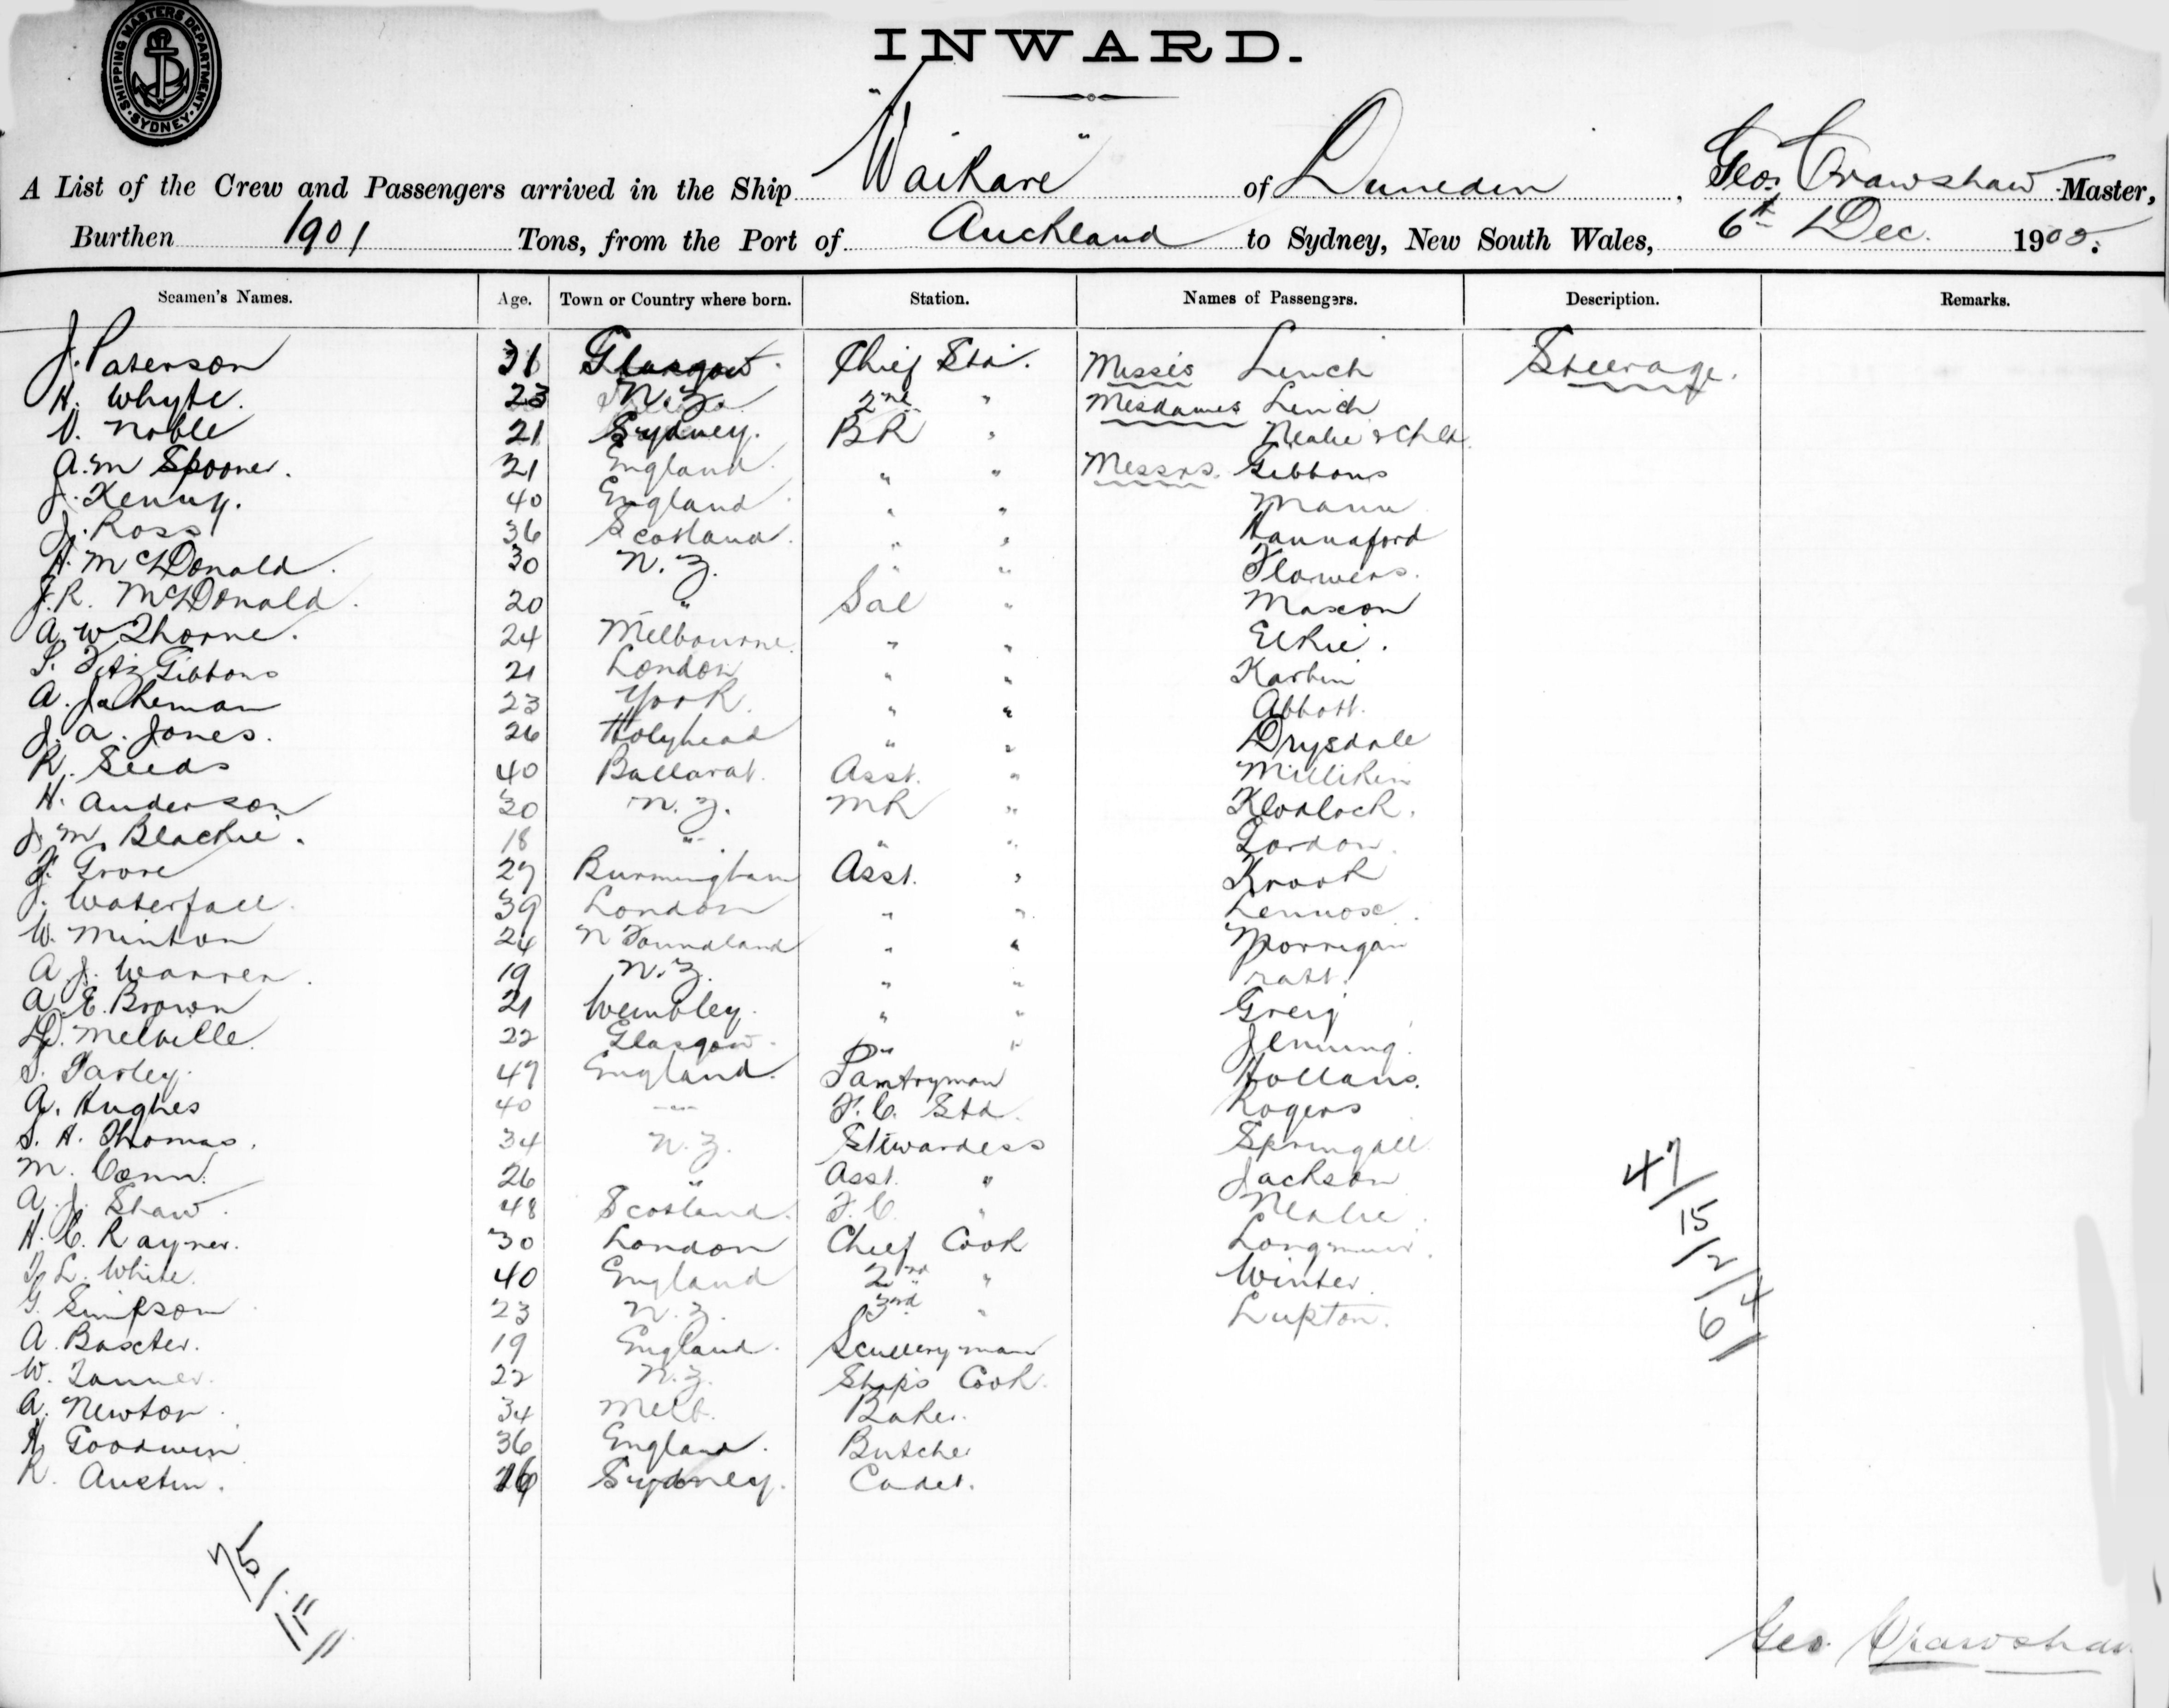 SHIPPING MASTERS DEPARTMENT · SYDNEY ·
INWARD.
A List of the Crew and Passengers arrived in the Ship "Waikare" of Dunedin, Geo. Crawshaw Master,
Burthen 1901 Tons, from the Port of Auckland to Sydney, New South Wales, 6th Dec. 1905.
Seamen's Names. Age. Town or Country where born. Station. Names of Passengers. Description. Remarks.
J. Paterson 31 Glasgow. Chief Std. Misses Linch Steerage.
H. Whyte. 23 N.Z. 2nd " Mesdames Linch
V. Noble 21 Sydney. BR " Nealie & Chld
A. M Spooner. 21 England. " " Messrs. Gibbons
J. Kenny. 40 England " " Mann
J. Ross 36 Scotland. " " Hannaford
H. McDonald. 30 N.Z. " Flowers.
J. R. McDonald. 20 " Sal " Maxon
A. W Thorne. 24 Melbourne. " " Elkie.
S. FitzGibbons 21 London " " Karbin
A. Jakeman 23 York. " " Abbott.
J. A. Jones. 26 Holyhead " " Drysdale
R. Seeds 40 Ballarat. Asst. " Milliken
H. Anderson 30 N.Z. MR "
J. M. Blackie. 18 " " " Gordon.
F. Grove 27 Burmingham Asst. " Krook
J. Waterfall. 39 London " " Lennox.
W. Minton 24 N Foundland " " Morrigan
A. J. Warren. 19 N.Z. " "
A. E. Brown 21 Wembley. " " Greig
D. Melville. 22 Glasgow. " " Jenning.
S. Farley. 47 England. Pantryman Hollans.
A. Hughes 40 " F. C. Std. Rogers
S. H. Thomas. 34 N.Z. Stewardess Springall
M. Conn. 26 " Asst. " Jackson
A. J. Shaw. 48 Scotland. F. C. " Nealie
H. C. Rayner. 30 London Chief Cook Longmuir.
L. White. 40 England 2nd " Winter
G. Simpson 23 N.Z. 3rd " Lupton.
A. Baxter. 19 England. Sculleryman
W. Tanner. 22 N.Z. Ships Cook.
A. Newton. 34 Melb. Baker.
H. Goodwin 36 England. Butcher
R. Austin. 16 Sydney. Cadet.
47/15/2/4
61
75/111
Geo. Crawshaw